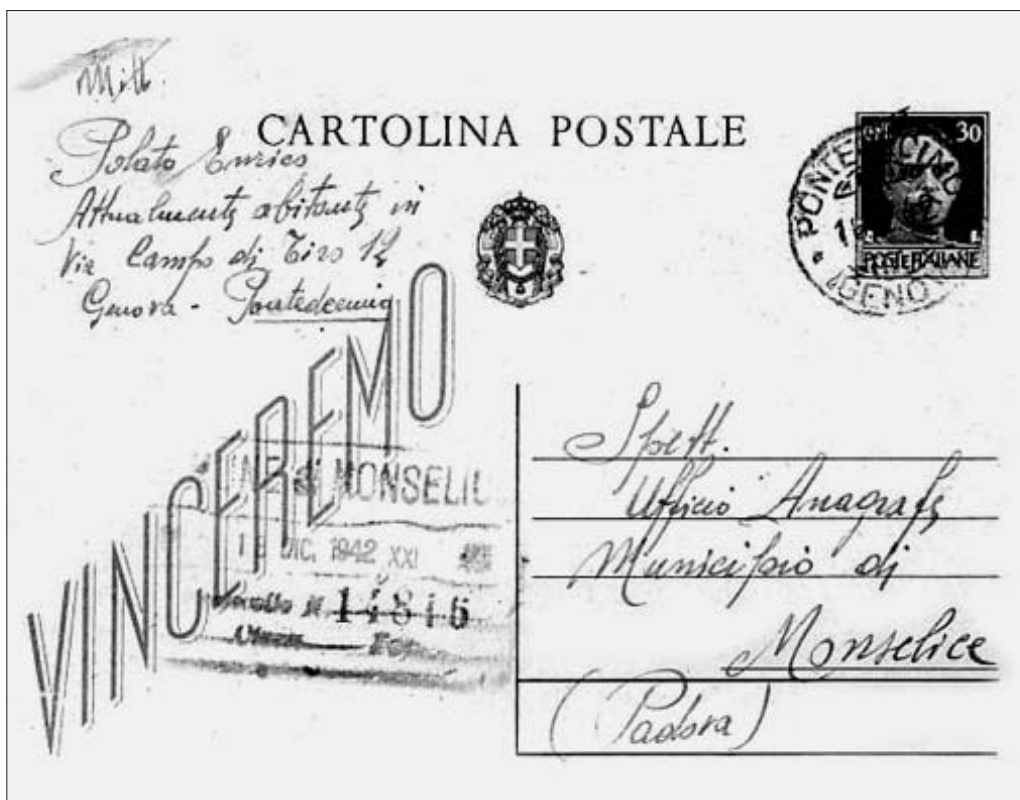 Mitt.
CARTOLINA POSTALE
Polato Enrico
Attualmente abitante in
Via Campo di Tiro 12
Genova - Pontedecimo
CMI. 30
POSTE ITALIANE
PONTEDECIMO
GENOVA
VINCEREMO
MONSELIC
DIC. 1942 XXI
N. 14815
Spett.
Ufficio Anagrafe
Municipio di
Monselice
(Padova)